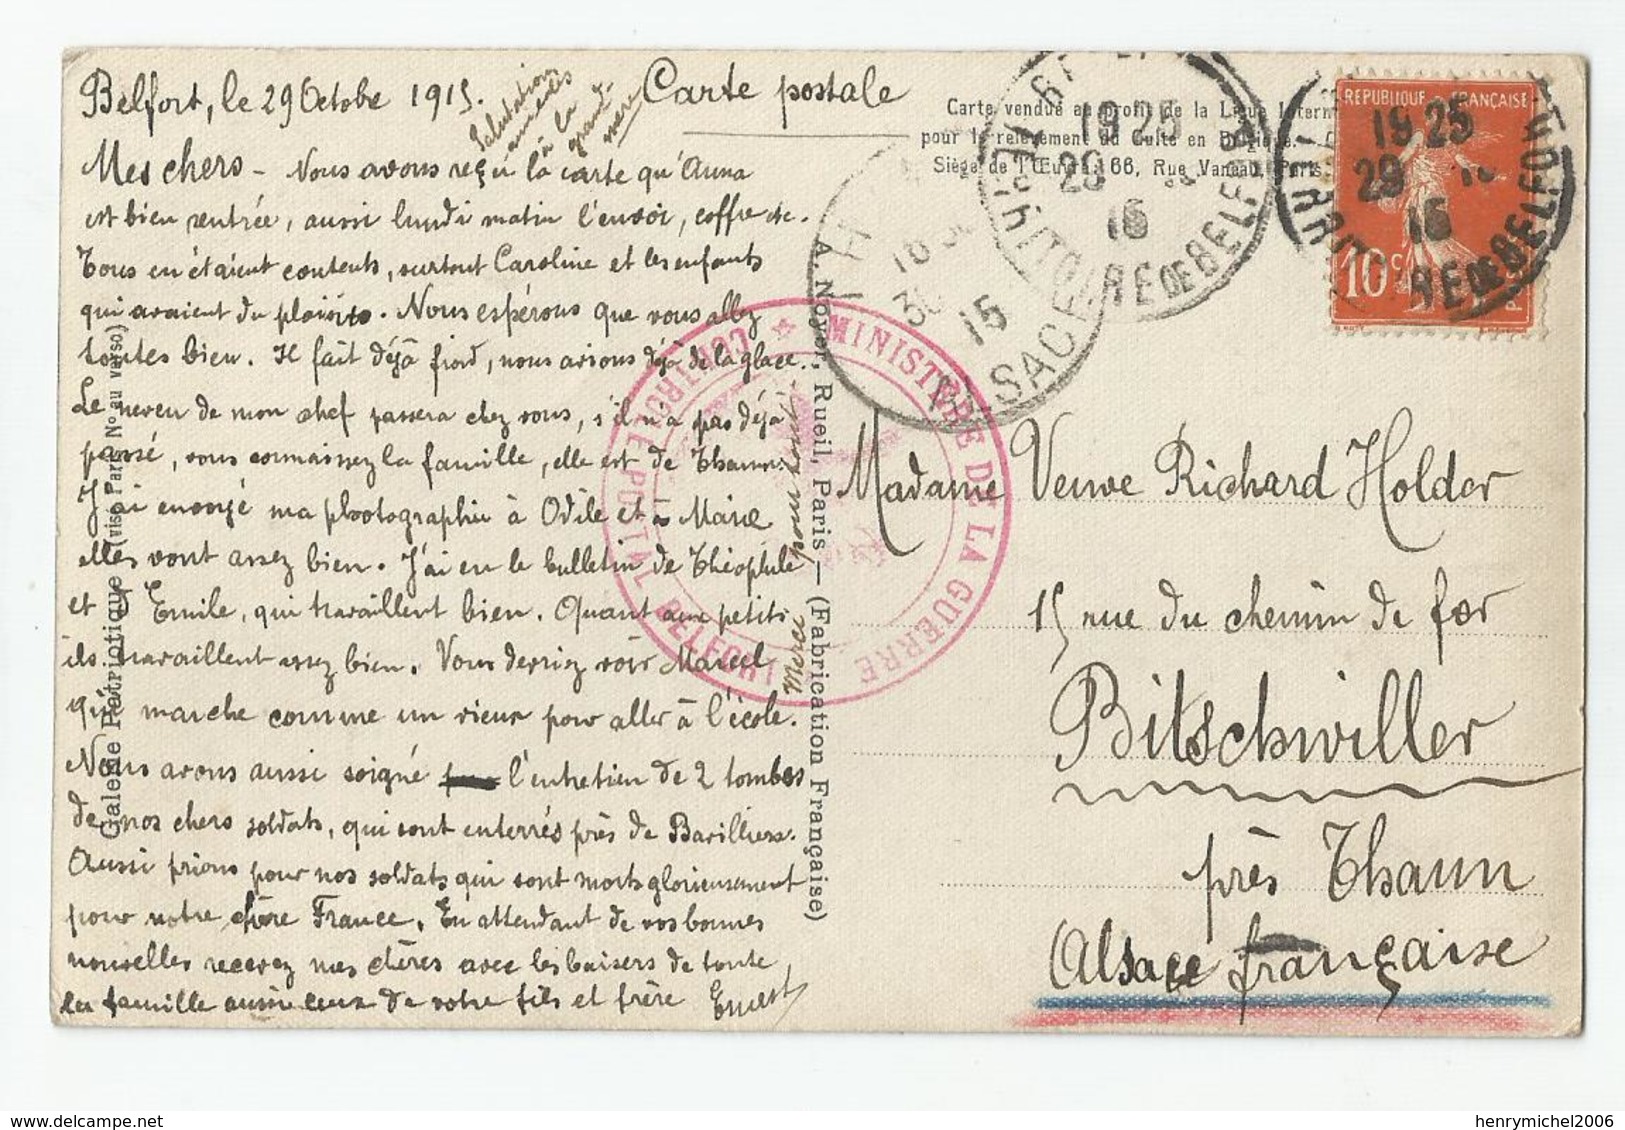 Belfort, le 29 Octobre 1915.
Salutations
amicales
à la
grand-
mère
Carte postale
Mes chers - Nous avons reçu la carte qu'Anna
est bien rentrée, aussi lundi matin l'envoi, coffre etc.
Tous en étaient contents, surtout Caroline et les enfants
qui avaient du plaisir. Nous espérons que vous allez
toutes bien. Il fait déjà froid, nous avions déjà de la glace.
Le neveu de mon chef passera chez vous, s'il n'a pas déjà
passé, vous connaissez la famille, elle est de Thann.
J'ai envoyé ma photographie à Odile et à Marie
elles vont assez bien. J'ai eu le bulletin de Théophile
et d'Emile, qui travaillent bien. Quant aux petits
ils travaillent assez bien. Vous devriez voir Marcel
qui marche comme un vieux pour aller à l'école.
Nous avons aussi soigné l'entretien de 2 tombes
de nos chers soldats, qui sont enterrés près de
Aussi prions pour nos soldats qui sont morts glorieusement
pour notre chère France. En attendant de vos bonnes
nouvelles recevez mes chères avec les baisers de toute
la famille aussi ceux de votre fils et frère Ernest
Merci
Galerie Patriotique (visé Paris No au verso)
A. Noyer, Rueil, Paris — (Fabrication Française)
Carte vendue au profit de la Ligue Intern
pour le relèvement du Culte en Belgique.
Siège de l'Œuvre : 66, Rue Vaneau, Paris
REPUBLIQUE FRANÇAISE
10 c
19 25
29
15
TERRITRE DE BELFORT
19 25
29
15
TERRITOIRE DE BELFORT
18 30
30
15
ALSACE
MINISTÈRE DE LA GUERRE
CONTROLE POSTAL BELFORT
Madame Veuve Richard Holder
15 rue du chemin de fer
Bitschwiller
près Thann
Alsace française
henrymichel2006